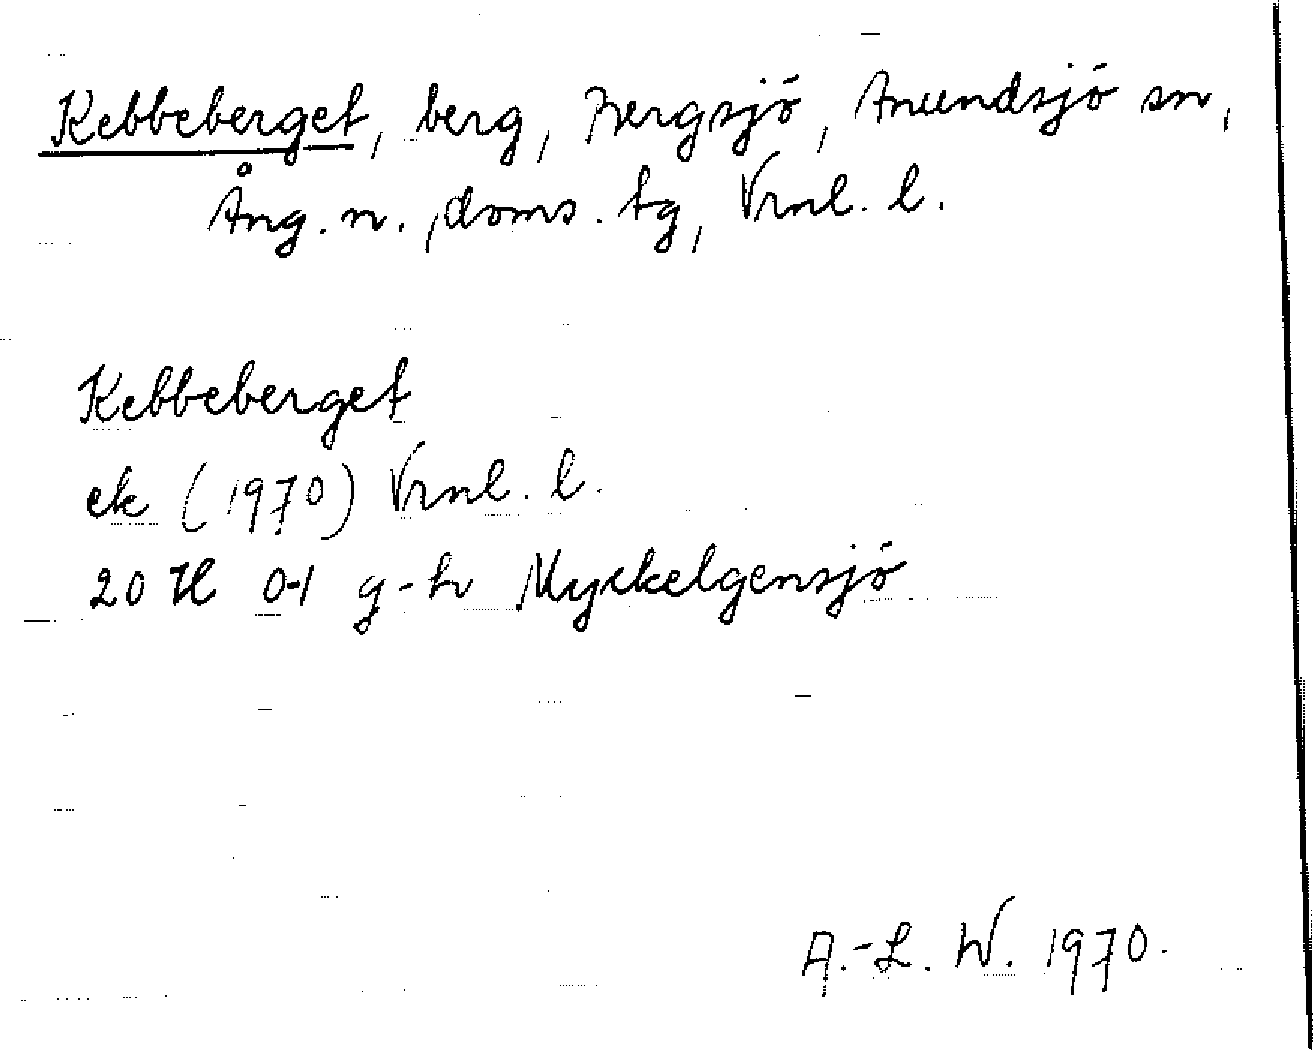 Kebbeberget, berg, Bergsjö, Anundsjö sn,
Ång. n. doms. tg, Vrnl. l.
Kebbeberget
ek (1970) Vrnl. l.
20 H 0-1 g-h Myckelgensjö
A.-L. W. 1970.